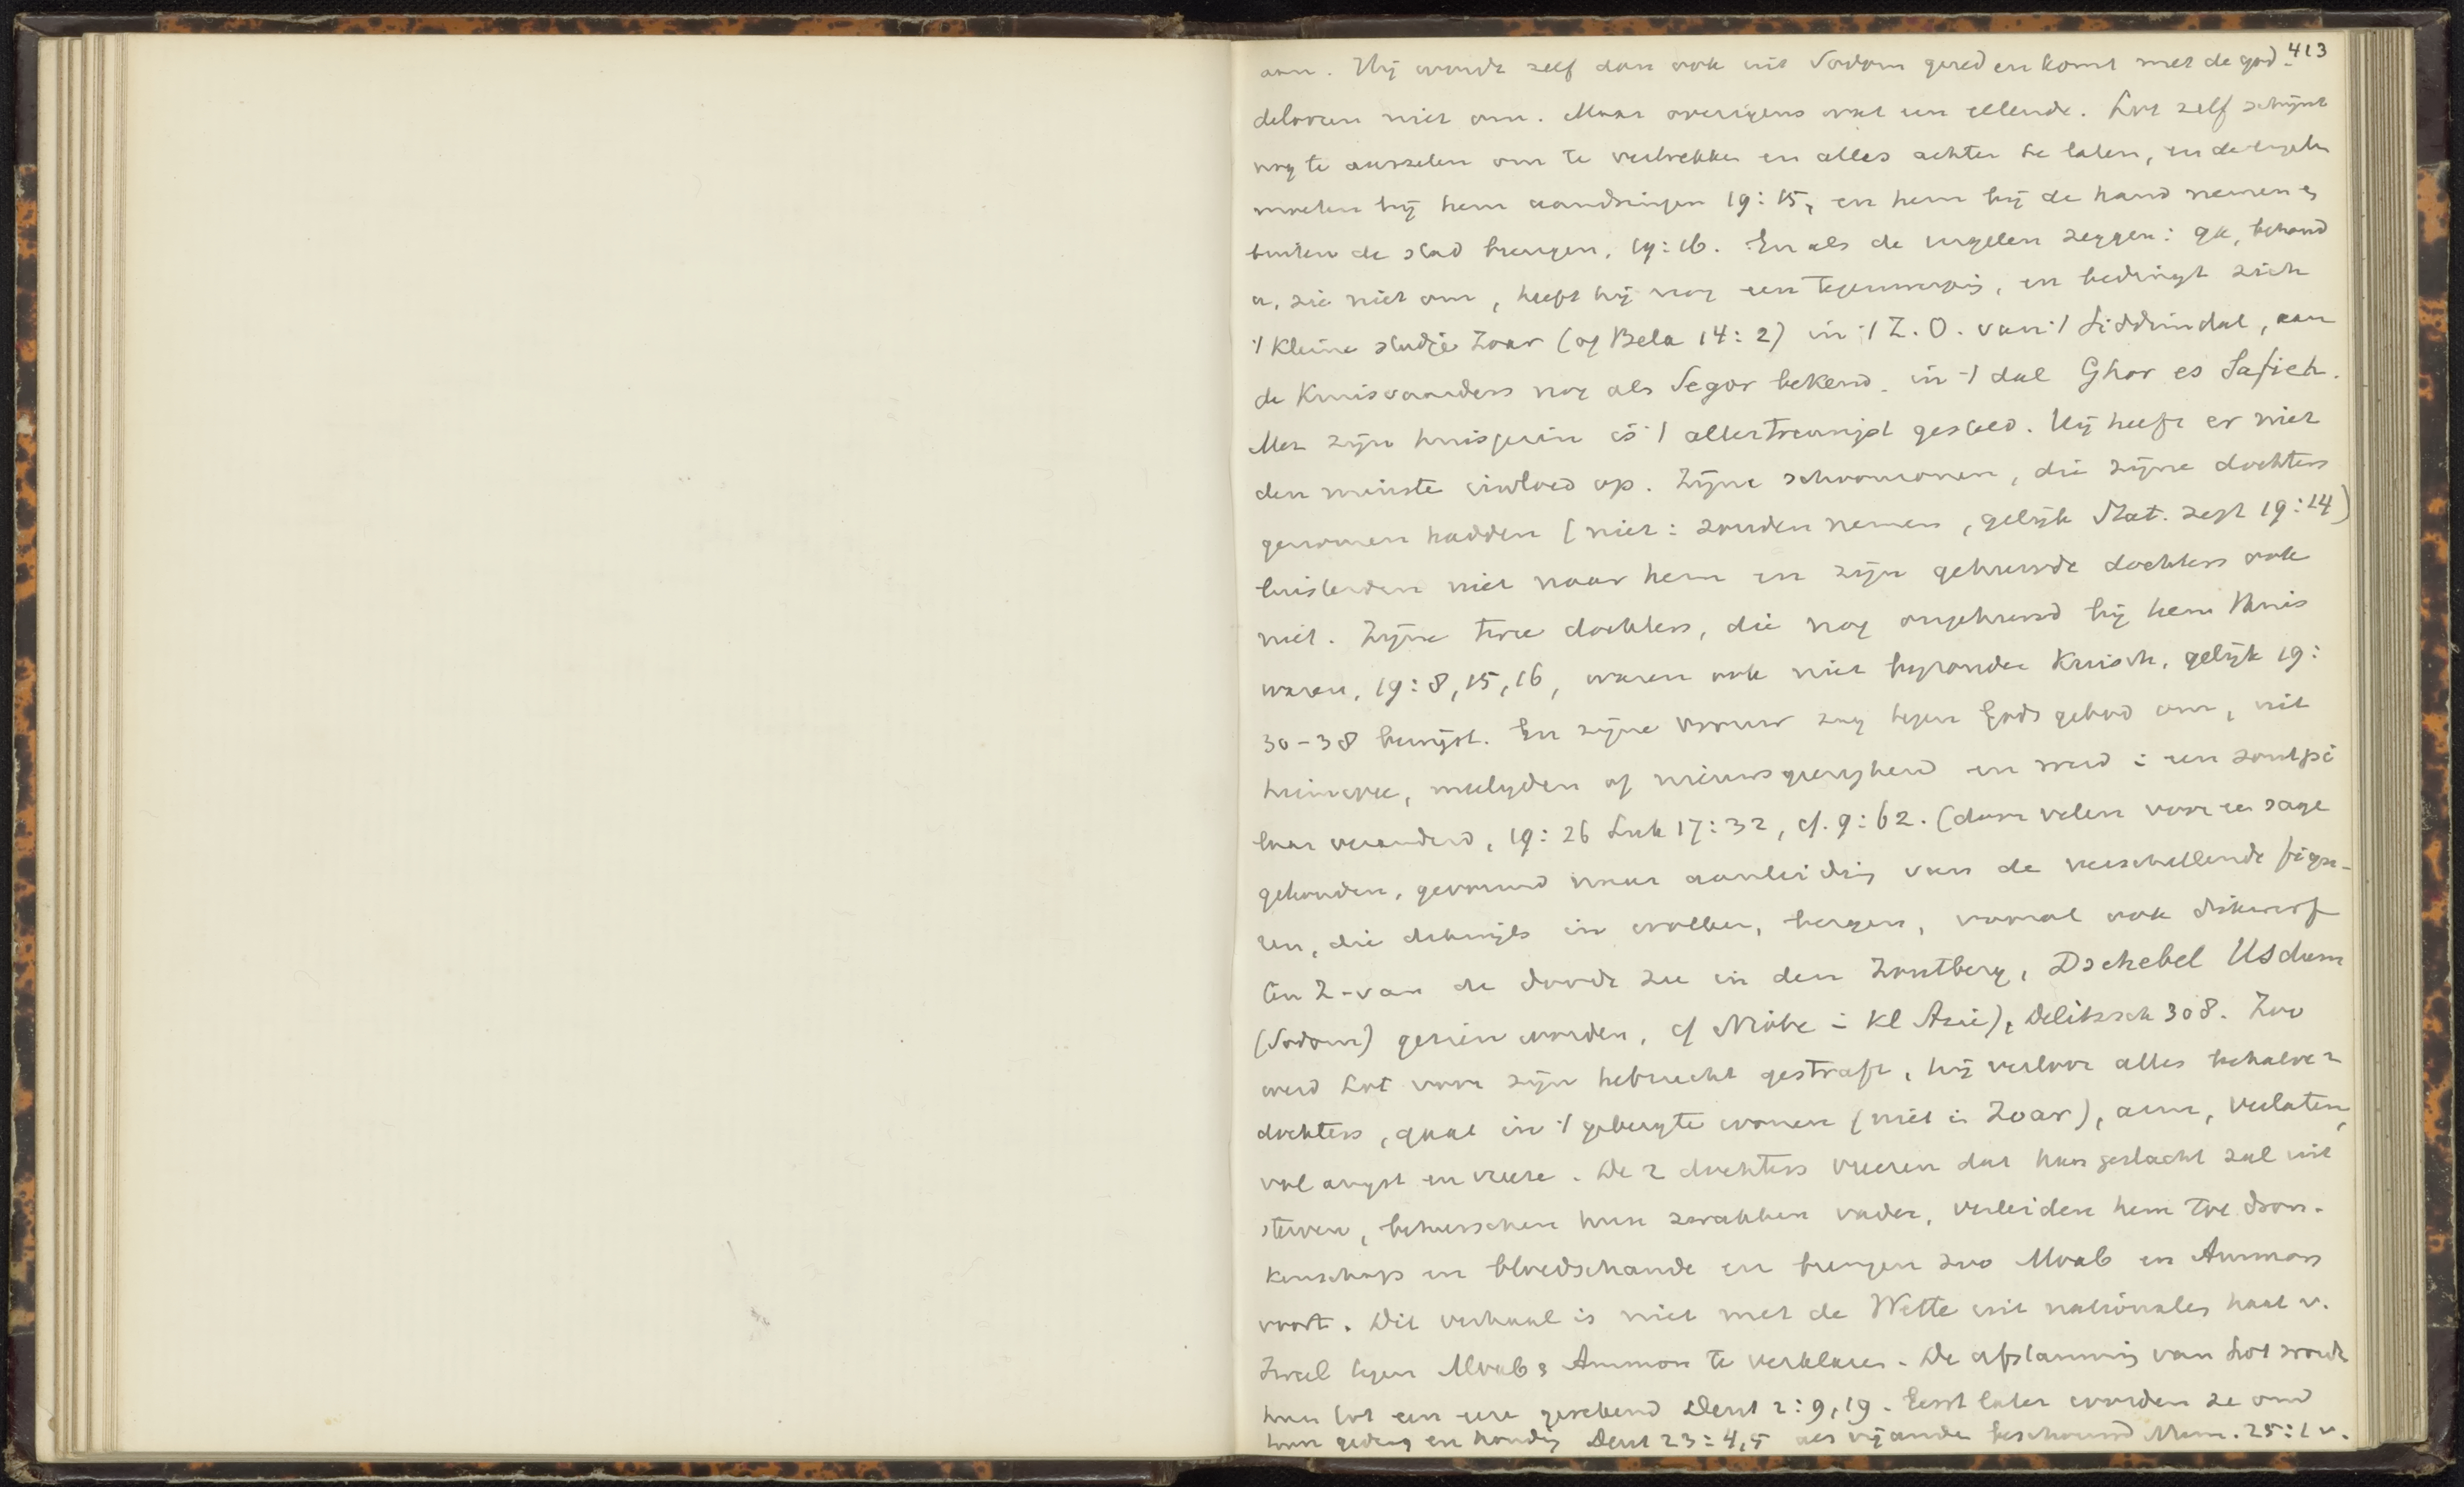 413
aan. Hij wordt zelf dan ook uit Sodom gered en komt met de god-
deloozen niet om. Maar overigens wat een ellende. Lot zelf schijnt
nog te aarzelen om te vertrekken en alles achter te laten, en de engelen
moeten bij hem aandringen 19:15, en hem bij de hand nemen &
buiten de stad brengen, 19:16. En als de engelen zeggen: ga, behoud
u, zie niet om, heeft hij nog een tegenwerping, en bedingt zich
't kleine stadje Zoar (of Bela 14:2) in 't Z.O. van 't Siddimdal, aan
de Kruisvaarders nog als Segor bekend, in 't dal Ghor es Safieh.
Met zijn huisgezin is 't allertreurigst gesteld. Hij heeft er niet
den minste invloed op. Zijne schoonzonen, die zijne dochters
genomen hadden (niet: zouden nemen, gelijk Stat. zegt 19:14)
luisterden niet naar hem en zijn gehuwde dochters ook
niet. Zijne twee dochters, die nog ongehuwd bij hem thuis
waren, 19:8,15,16, waren ook niet bijzonder kuisch, gelijk 19:
30-38 bewijst. En zijne vrouw zag tegen Gods gebod om, uit
heimwee, medelijden of nieuwsgierigheid en werd i een zoutpi
laar veranderd, 19:26 Luk 17:32, cf. 9:62. (door velen voor een sage
gehouden, gevormd naar aanleiding van de verschillende figu-
ren, die dikwijls in wolken, bergen, vooral ook dikwerf
ten Z. van de doode zee in den Zoutberg, Dschebel Usdum
(Sodom) gezien worden, cf Niobe i Kl Azie), Delitzsch 308. Zoo
werd Lot voor zijn hebzucht gestraft, hij verloor alles behalve 2
dochters, gaat in 't gebergte wonen (niet in Zoar), arm, verlaten,
vol angst en vreeze. De 2 dochters vreezen dat hun geslacht zal uit
sterven, beheerschen hun zwakken vader, verleiden hem tot dron-
kenschap en bloedschande en brengen zoo Moab en Ammon
voort. Dit verhaal is niet met de Wette uit nationalen haat v.
Israel tegen Moab & Ammon te verklaren. De afstamming van Lot wordt
hun tot een eere gerekend Deut 2:9,19. Eerst later worden ze om
hun gedrag en houding Deut 23:4,5 als vijanden beschouwd Num. 25:1 v.